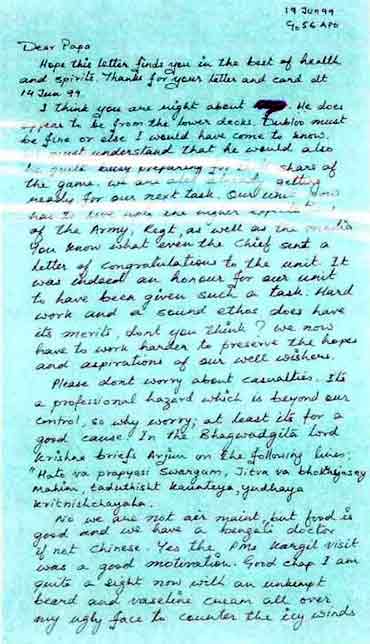 19 JUN 99
C/o 56 APO
Dear Papa
Hope this letter finds you in the best of health
and spirits. Thanks for your letter and card dt
14 Jun 99.
I think you are right about. He does
appear to be from the lower decks. Dubloo must
be fine or else I would have come to know.
must understand that he would also
be quite busy preparing for share of
the game. we are also getting
ready for our next task. Our unit now
has to live upto the higher
of the Army, Regt, as well as the media
You know what even the Chief sent a
letter of congratulations to the unit. It
was indeed an honour for our unit
to have been given such a task. Hard
work and a sound ethos does have
its merits, dont you think? we now
have to work harder to preserve the hopes
and aspirations of our well wishers.
Please dont worry about casualties. Its
a professional hazard which is beyond our
control, so why worry; at least its for a
good cause. In the Bhagwadgita Lord
Krishna briefs Arjun on the following lines:
"Hato va prapyasi Swargum, Jitva va bhokshyasey
Mahim, taduthisht Kaunteya, yudhaya
kritnishchayaha.
No we are not air maint, but food is
good and we have a bengali doctor
if not Chinese. Yes the PMs Kargil visit
was a good motivation. Good chap I am
quite a sight now with an unkempt
beard and vaseline cream all over
my ugly face to counter the icy winds